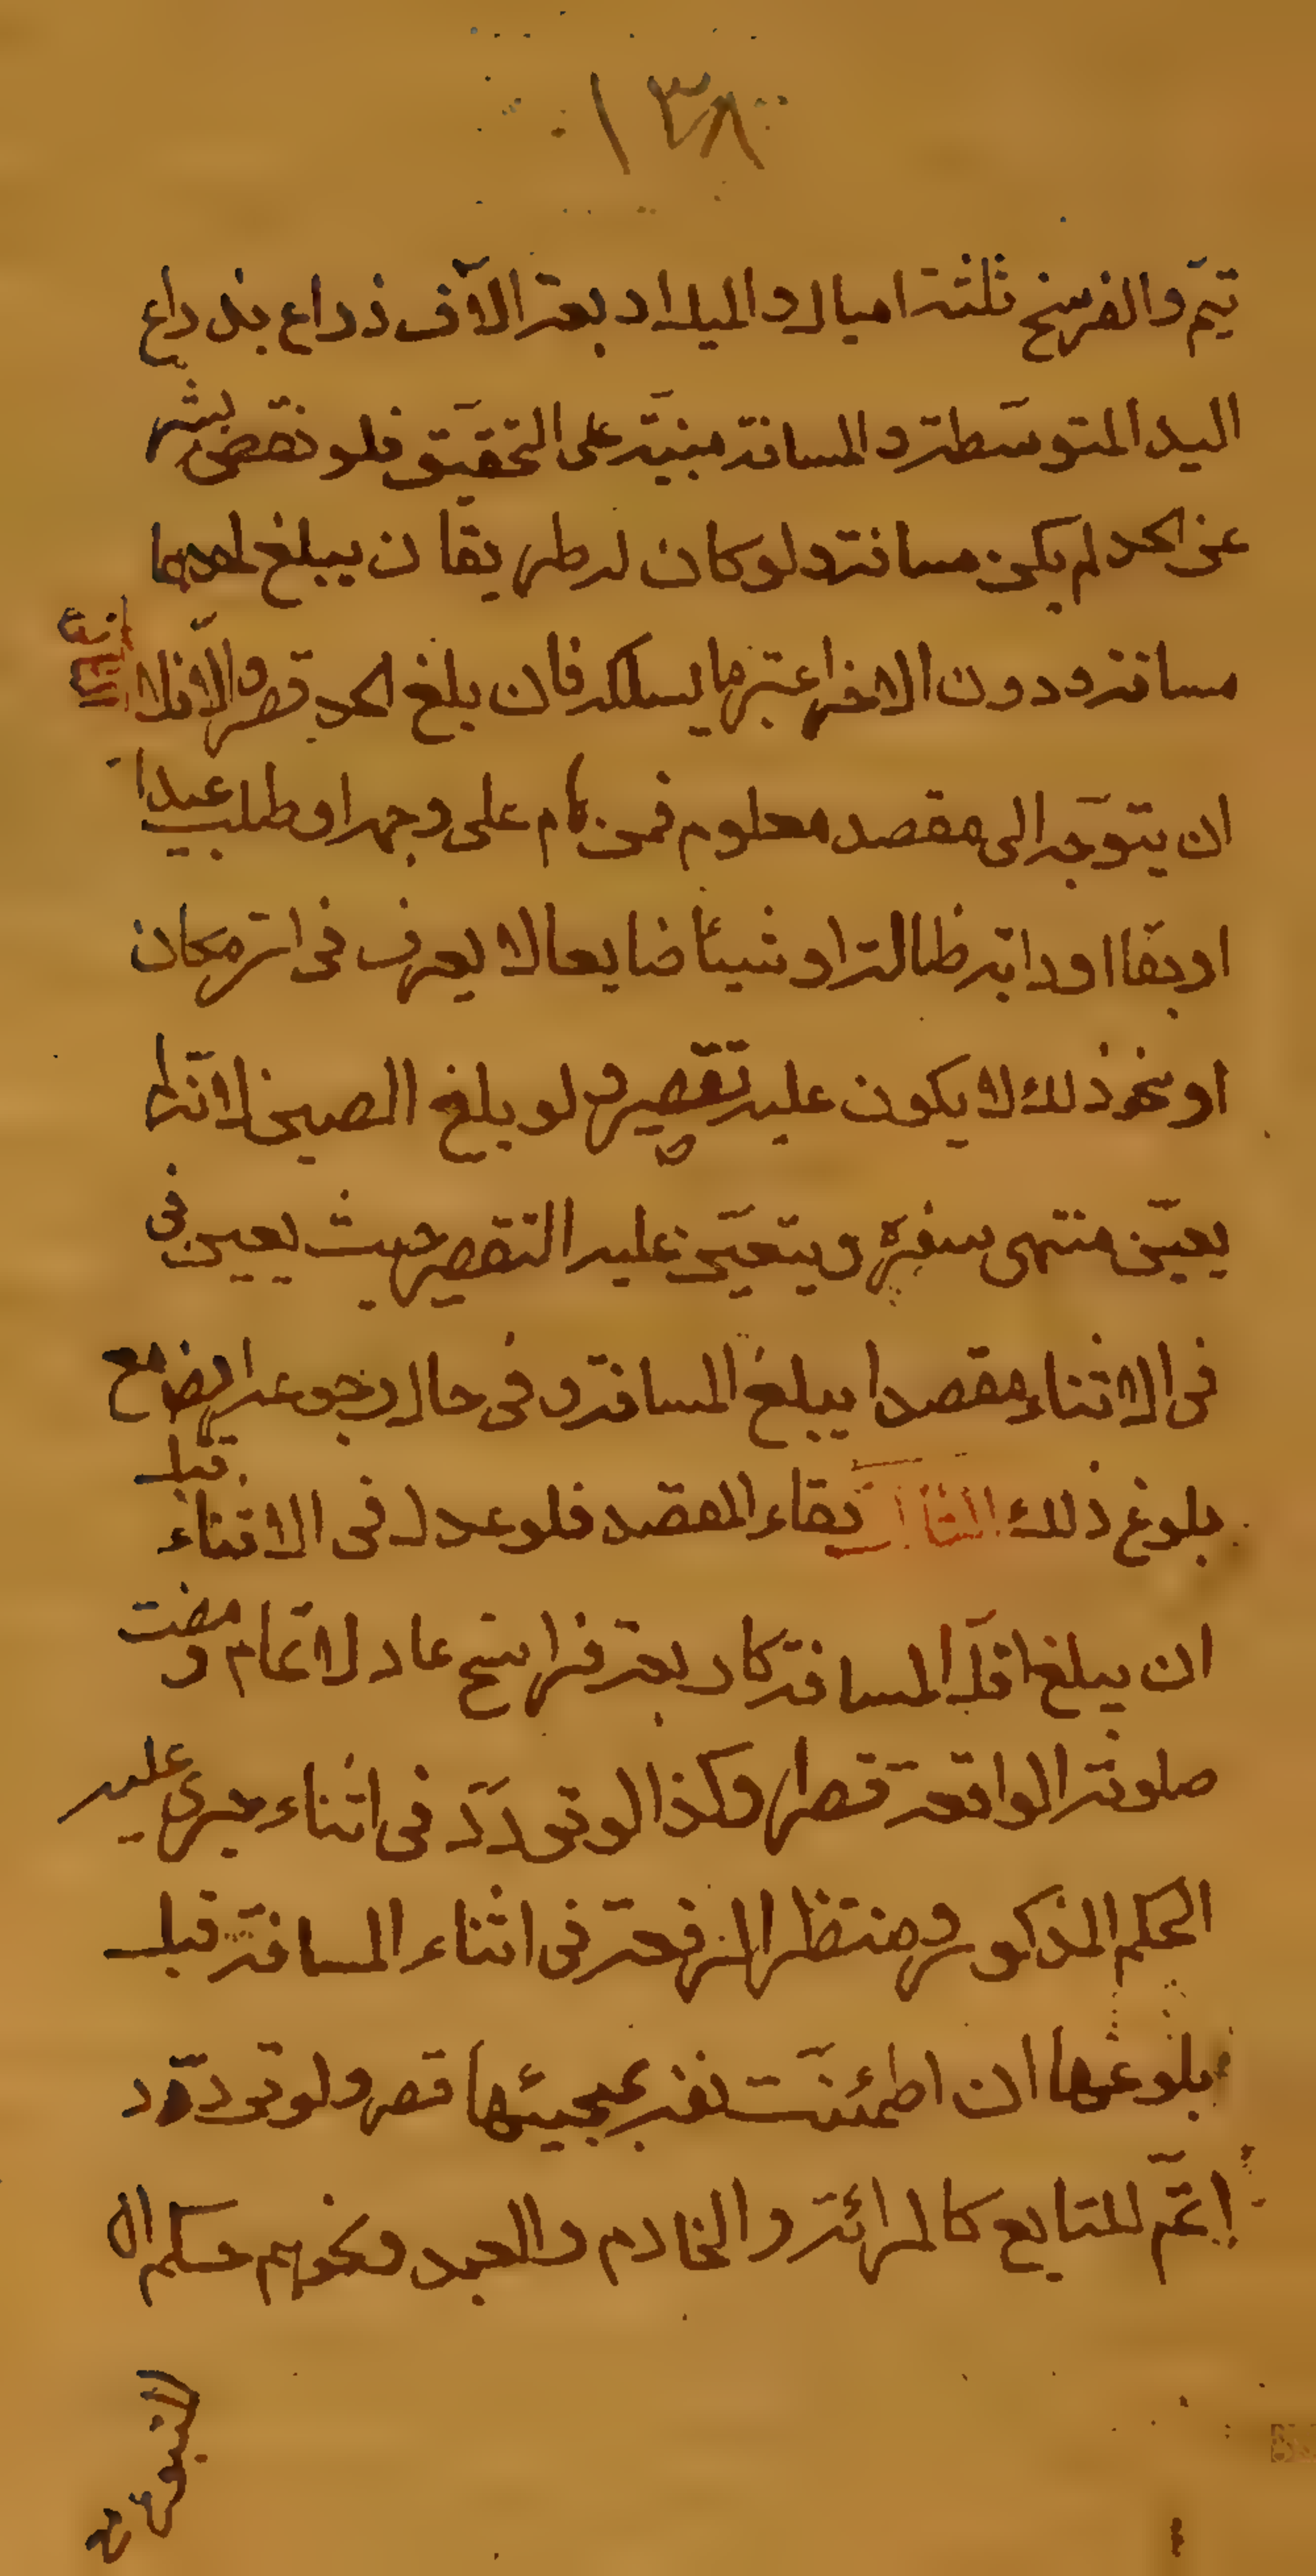 ١٣٨
تيمّ والفرسخ ثلثة اميال والميل اربعة الآف ذراع بذراع
اليد المتوسّطة والمسافة مبنيّة على التحقيق فلو نقص بشبر
عن الحد لم يكن مسافة ولو كان له طريقان يبلغ احدهما
مسافة ودون الاخر اعتبر ما يسلكه فان بلغ الحد قصر والّا فلا
ان يتوجّه الى مقصد معلوم فمن هام على وجهه او طلب عبدا
ابقا او دابة ظالة او شيئا ضايعا لا يعرف في اي مكان
او نحو ذلك لا يكون عليه تقصير ولو بلغ الصين لانّه لم
يعيّن منتهى سفره ويتعيّن عليه التقصير حيث يعين في
في الاثناء مقصدا يبلغ المسافة وفي حال رجوعه ايضا مع
بلوغ ذلك الثالث بقاء المقصد فلو عدل في الاثناء قبل
ان يبلغ اقلّ المسافة كاربعة فراسخ عاد للاتمام ومضت
صلوته الواقعة قصرا وكذا لو تردّد في اثناء جرى عليه
الحكم المذكور ومنتظر الرفقة في اثناء المسافة قبل
بلوغها ان اطمئنّت نفسه بمجيئها قصر ولو تردّد
اتمّ للتابع كالمرائة والخادم والعبد ونحوهم حكم ال